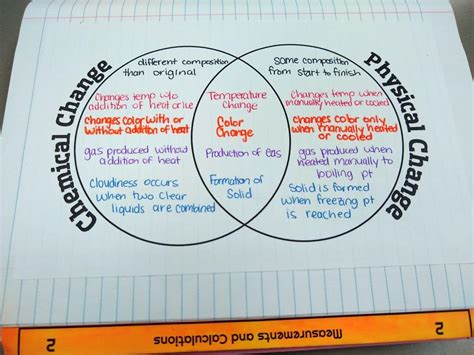 Chemical Change
different composition
than original
Changes temp w/o
addition of heat
changes color with or
without addition of heat
gas produced without
addition of heat
Cloudiness occurs
when two clear
liquids are combined
Temperature
Change
Color
Change
Production of Gas
Formation of
Solid
Physical Change
same composition
from start to finish
Changes temp when
manually heated or cooled
changes color only
when manually heated
or cooled
gas produced when
heated manually to
boiling pt
Solid is formed
when freezing pt
is reached
2
Measurements and Calculations
2